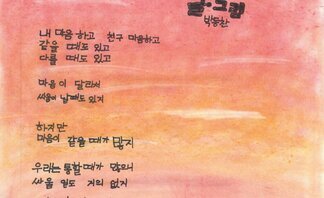 박동찬
내 마음하고 친구 마음하고
같을 때도 있고
다를 때도 있고
마음이 달라서
싸움이 날때도 있지
하지만
마음이 같을 때가 많지
우리는 통할 때가 많으니
싸울 일도 거의 없지